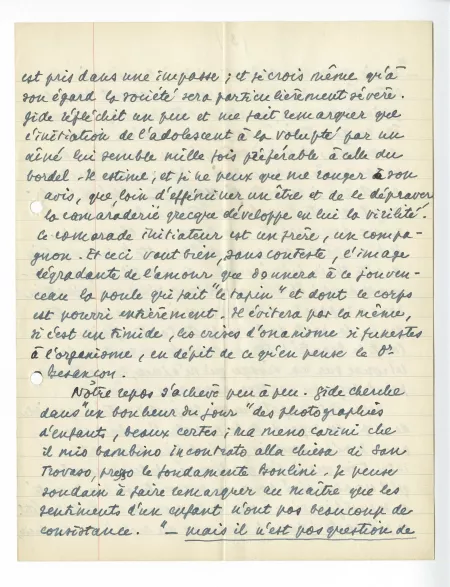 est pris dans une impasse ; et je crois même qu'à
son égard la société sera particulièrement sévère.
Gide réfléchit un peu et me fait remarquer que
l'initiation de l'adolescent à la volupté par un
aîné lui semble mille fois préférable à celle du
bordel - Il estime, et je ne peux que me ranger à son
avis, que, loin d'efféminer un être et de le dépraver
la camaraderie grecque développe en lui la virilité.
Ce camarade initiateur est un frère, un compa-
gnon. Et ceci vaut bien, sans conteste, l'image
dégradante de l'amour que donnera à ce jouven-
ceau la poule qui fait "le tapin" et dont le corps
est pourri entièrement. Il évitera par là même,
si c'est un timide, les crises d'onanisme si funestes
à l'organisme, en dépit de ce qu'en pense le Dr
Besançon.
Notre repos s'achève peu à peu. Gide cherche
dans "un bonheur du jour" des photographies
d'enfants, beaux certes ; ma meno carini che
il mio bambino incontrato alla chiesa di San
Trovaso, presso le fondamente Bonlini - Je pense
soudain à faire remarquer au maître que les
sentiments d'un enfant n'ont pas beaucoup de
consistance. "- mais il n'est pas question de